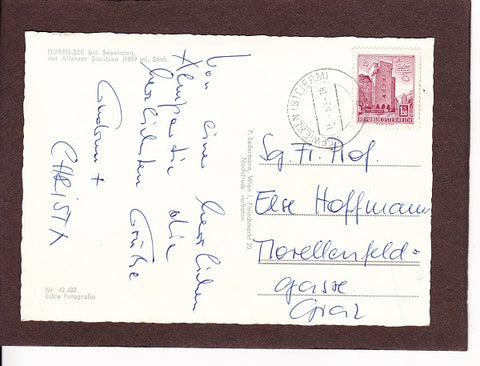 DÜRRN-SEE bei Seewiesen,
mit Aflenzer Staritzen (1897 m), Stmk.
Von einer herrlichen
Almpartie die
herzlichsten Grüße
Gudrun +
CHRISTA
Nr. 42.403
Echte Fotografie
P. Ledermann, Wien I, Fleischmarkt 20
Nachdruck verboten
SEEWIESEN (STEIERM)
REPUBLIK ÖSTERREICH
Sg. Fr. Prof.
Else Hoffmann
Morellenfeld-
gasse
Graz